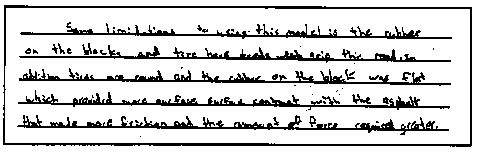 Some limitations to using this model is the rubber
on the blocks and tire have treads grip the road. In
addition tires are round and the rubber on the block was flat
which provided more surface surface contract with the asphalt
that made more friction and the amount of force required greater.